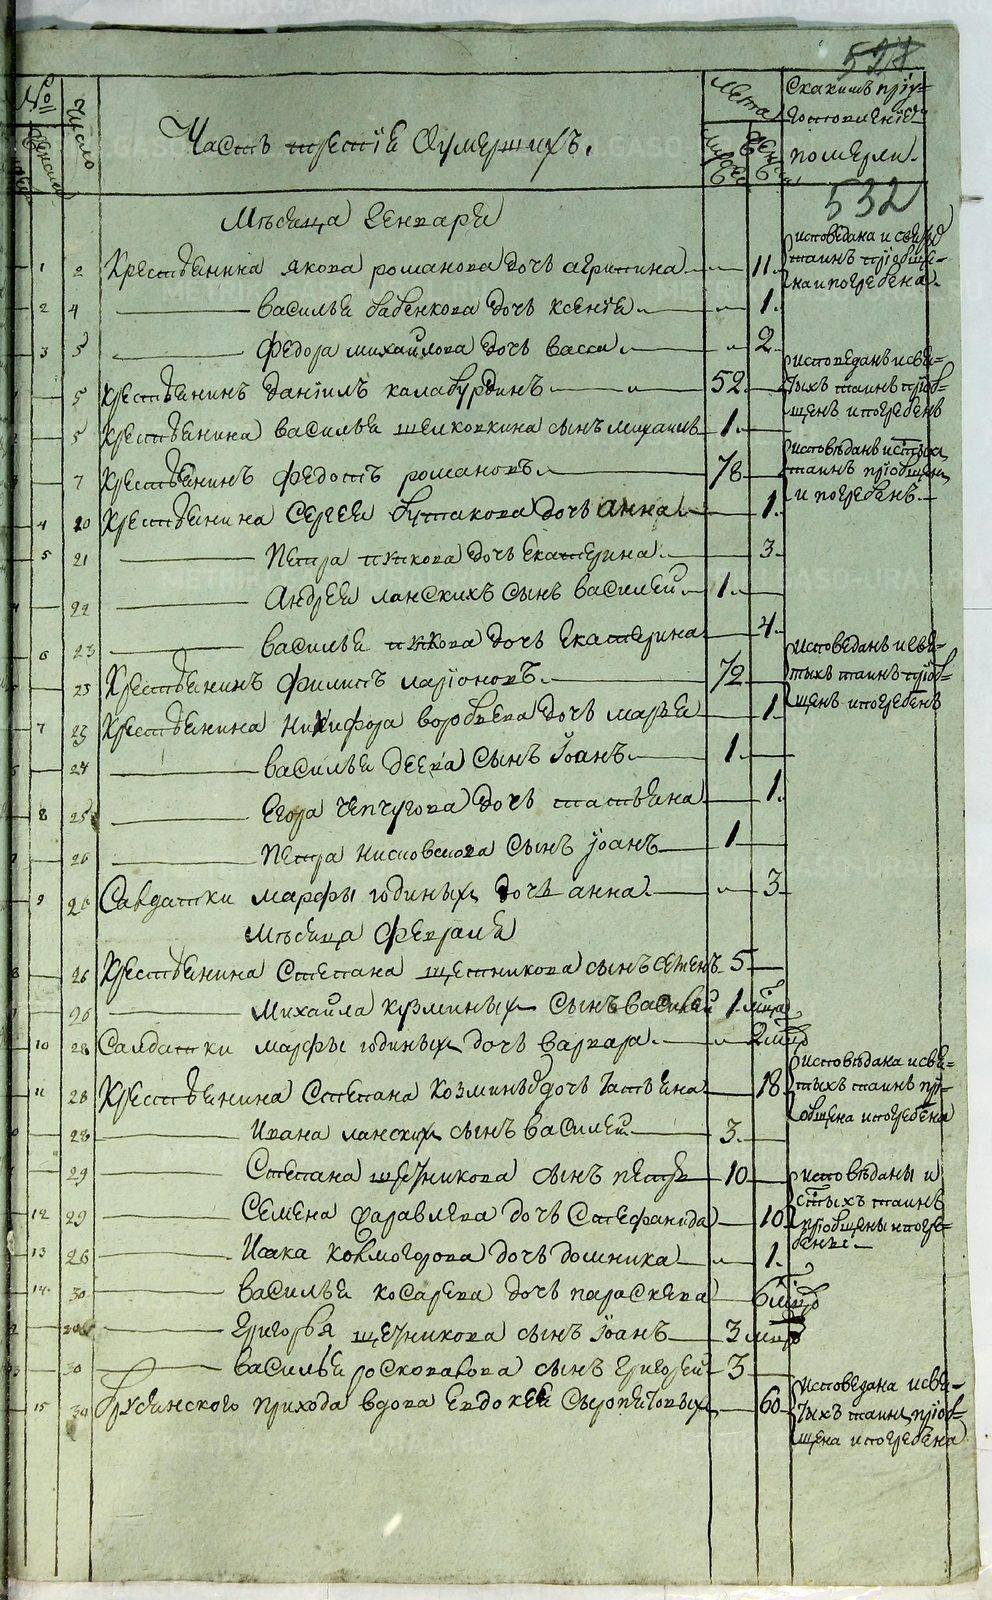 532
№
Число
женска
Часть третїя Оумершихъ.
Лѣта
Скакимъ прїу=
готовленїем
померли.
532
Мѣсяца Генваря
1 2 Крестьянина якова романова дочь агрипина 11.
исповѣдана и святых
таинъ прїобще=
на и погребена.
2 4 василья бабенкова дочь ксенїя 1.
3 5 Федора михайлова дочь васса 2
5 крестьянинъ данїилъ калабурдинъ 52
исповеданъ и свя=
тыхъ таинъ прїоб=
щенъ и погребенъ
5 крестьянина василья шелковкина сынъ михаилъ 1
7 крестьянинъ Федотъ романовъ 78
исповѣданъ и стыхъ
таинъ прїобщенъ
и погребенъ
4 20 крестьянина Сергея бутакова дочь анна 1.
5 21 петра дочь екатерина 3.
22 Андрея ланскихъ сынъ василей 1.
6 23 василья дочь екатерина 4.
23 Крестьянинъ Филипъ ларїоновъ 72
исповѣданъ и свя=
тыхъ таинъ прїоб=
щенъ и погребенъ
7 23 Крестьянина никифора воробьева дочь марья 1.
24 василья деева сынъ їоанъ 1.
8 25 егора чепчугова дочь татьяна 1.
26 петра сынъ їоанъ 1
9 26 Савдатки марфы годиныхъ дочь анна 3
мѣсяца Февраля
26 Крестьянина Степана щетникова сынъ семенъ 5
26 Михайла кузминыхъ сынъ василей 1 мца
10 28 Салдатки марфы годиныхъ дочь варвара 2 мцъ
11 28 Крестьянина Степана козминыхъ дочь татьяна 18
исповѣдана и свя=
тыхъ таинъ прї=
общена и погребена
28 Ивана ланскихъ сынъ василей 3
29 Степана щетникова сынъ петръ 10
исповѣданы и
стыхъ таинъ
прїобщены и погре=
бены
12 29 Семена журавлева дочь Стефанида 10
13 26 Исака ковмогорова дочь домника 1.
14 30 василья косарева дочь параскева 6 мцъ
Григорья щетникова сынъ їоанъ 3 мцъ
30 василья сынъ григорей 3
15 30 прихода вдова евдокея 60
исповедана и свя=
тыхъ таинъ прїоб=
щена и погребена